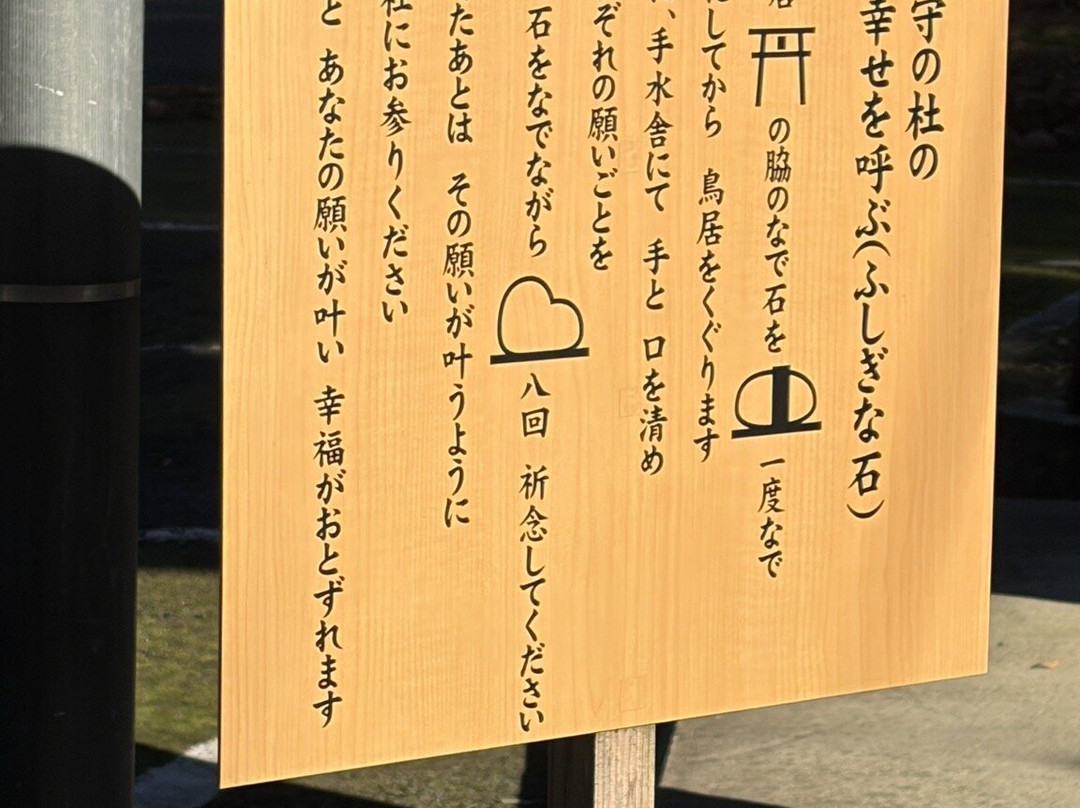 守の杜の
幸せを呼ぶ(ふしぎな石)
の脇のなで石を 一度なで
してから 鳥居をくぐります
、手水舎にて 手と 口を清め
ぞれの願いごとを
石をなでながら 八回 祈念してください
たあとは その願いが叶うように
社にお参りください
と あなたの願いが叶い 幸福がおとずれます